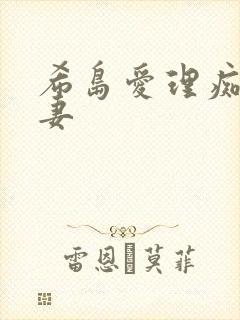 希島愛理痴
妻
雷恩 莫菲